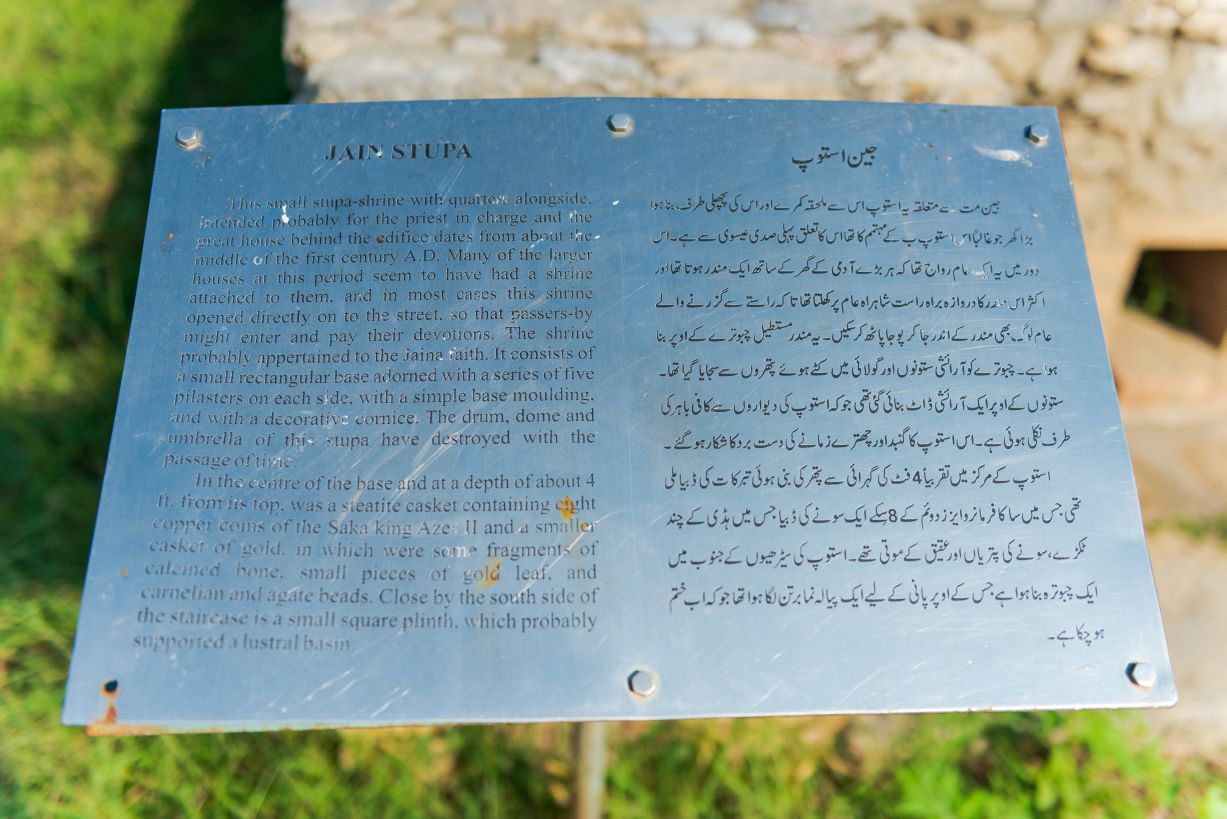 JAIN STUPA
This small stupa-shrine with quarters alongside,
intended probably for the priest in charge and the
great house behind the edifice dates from about the
middle of the first century A.D. Many of the larger
houses at this period seem to have had a shrine
attached to them, and in most cases this shrine
opened directly on to the street, so that passers-by
might enter and pay their devotions. The shrine
probably appertained to the Jaina faith. It consists of
a small rectangular base adorned with a series of five
pilasters on each side, with a simple base moulding,
and with a decorative cornice. The drum, dome and
umbrella of this stupa have destroyed with the
passage of time.
In the centre of the base and at a depth of about 4
ft. from its top, was a steatite casket containing eight
copper coins of the Saka king Azes II and a smaller
casket of gold, in which were some fragments of
calcined bone, small pieces of gold leaf, and
carnelian and agate beads. Close by the south side of
the staircase is a small square plinth, which probably
supported a lustral basin
جین استوپ
جین مت سے متعلقہ یہ استوپ اس سے ملحقہ کمرے اور اس کی پچھلی طرف بنا ہوا
بڑا گھر جو غالباً اس استوپ کے مہتمم کا تھا اس کا تعلق پہلی صدی عیسوی سے ہے۔ اس
دور میں یہ ایک عام رواج تھا کہ ہر بڑے آدمی کے گھر کے ساتھ ایک مندر ہوتا تھا اور
اکثر اس مندر کا دروازہ براہ راست شاہراہ عام پر کھلتا تھا تا کہ راستے سے گزرنے والے
عام لوگ بھی مندر کے اندر جا کر پوجا پاٹھ کر سکیں۔ یہ مندر مستطیل چبوترے کے اوپر بنا
ہوا ہے۔ چبوترے کو آرائشی ستونوں اور گولائی میں کٹے ہوئے پتھروں سے سجایا گیا تھا۔
ستونوں کے اوپر ایک آرائشی ڈاٹ بنائی گئی تھی جو کہ استوپ کی دیواروں سے کافی باہر کی
طرف نکلی ہوئی ہے۔ اس استوپ کا گنبد اور چھترے زمانے کی دست برد کا شکار ہو گئے۔
استوپ کے مرکز میں تقریباً 4 فٹ کی گہرائی سے پتھر کی بنی ہوئی تبرکات کی ڈبیا ملی
تھی جس میں ساکا فرمانروا ایزز دوئم کے 8 سکے ایک سونے کی ڈبیا جس میں ہڈی کے چند
ٹکڑے، سونے کی پتریاں اور عقیق کے موتی تھے۔ استوپ کی سیڑھیوں کے جنوب میں
ایک چبوترہ بنا ہوا ہے جس کے اوپر پانی کے لیے ایک پیالہ نما برتن لگا ہوا تھا جو کہ اب ختم
ہو چکا ہے۔